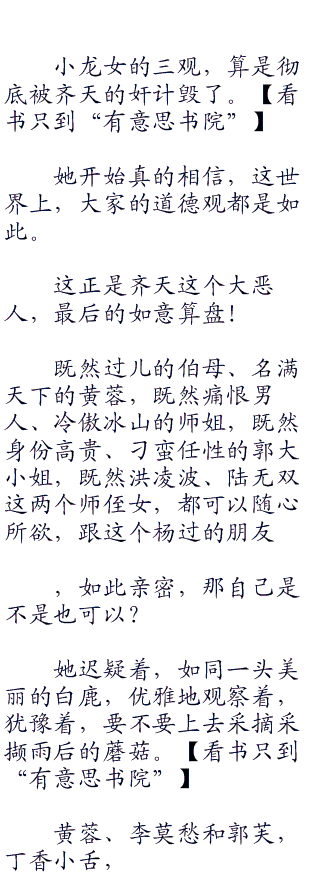 小龙女的三观，算是彻
底被齐天的奸计毁了。【看
书只到“有意思书院”】
她开始真的相信，这世
界上，大家的道德观都是如
此。
这正是齐天这个大恶
人，最后的如意算盘！
既然过儿的伯母、名满
天下的黄蓉，既然痛恨男
人、冷傲冰山的师姐，既然
身份高贵、刁蛮任性的郭大
小姐，既然洪凌波、陆无双
这两个师侄女，都可以随心
所欲，跟这个杨过的朋友
，如此亲密，那自己是
不是也可以？
她迟疑着，如同一头美
丽的白鹿，优雅地观察着，
犹豫着，要不要上去采摘采
撷雨后的蘑菇。【看书只到
“有意思书院”】
黄蓉、李莫愁和郭芙，
丁香小舌，